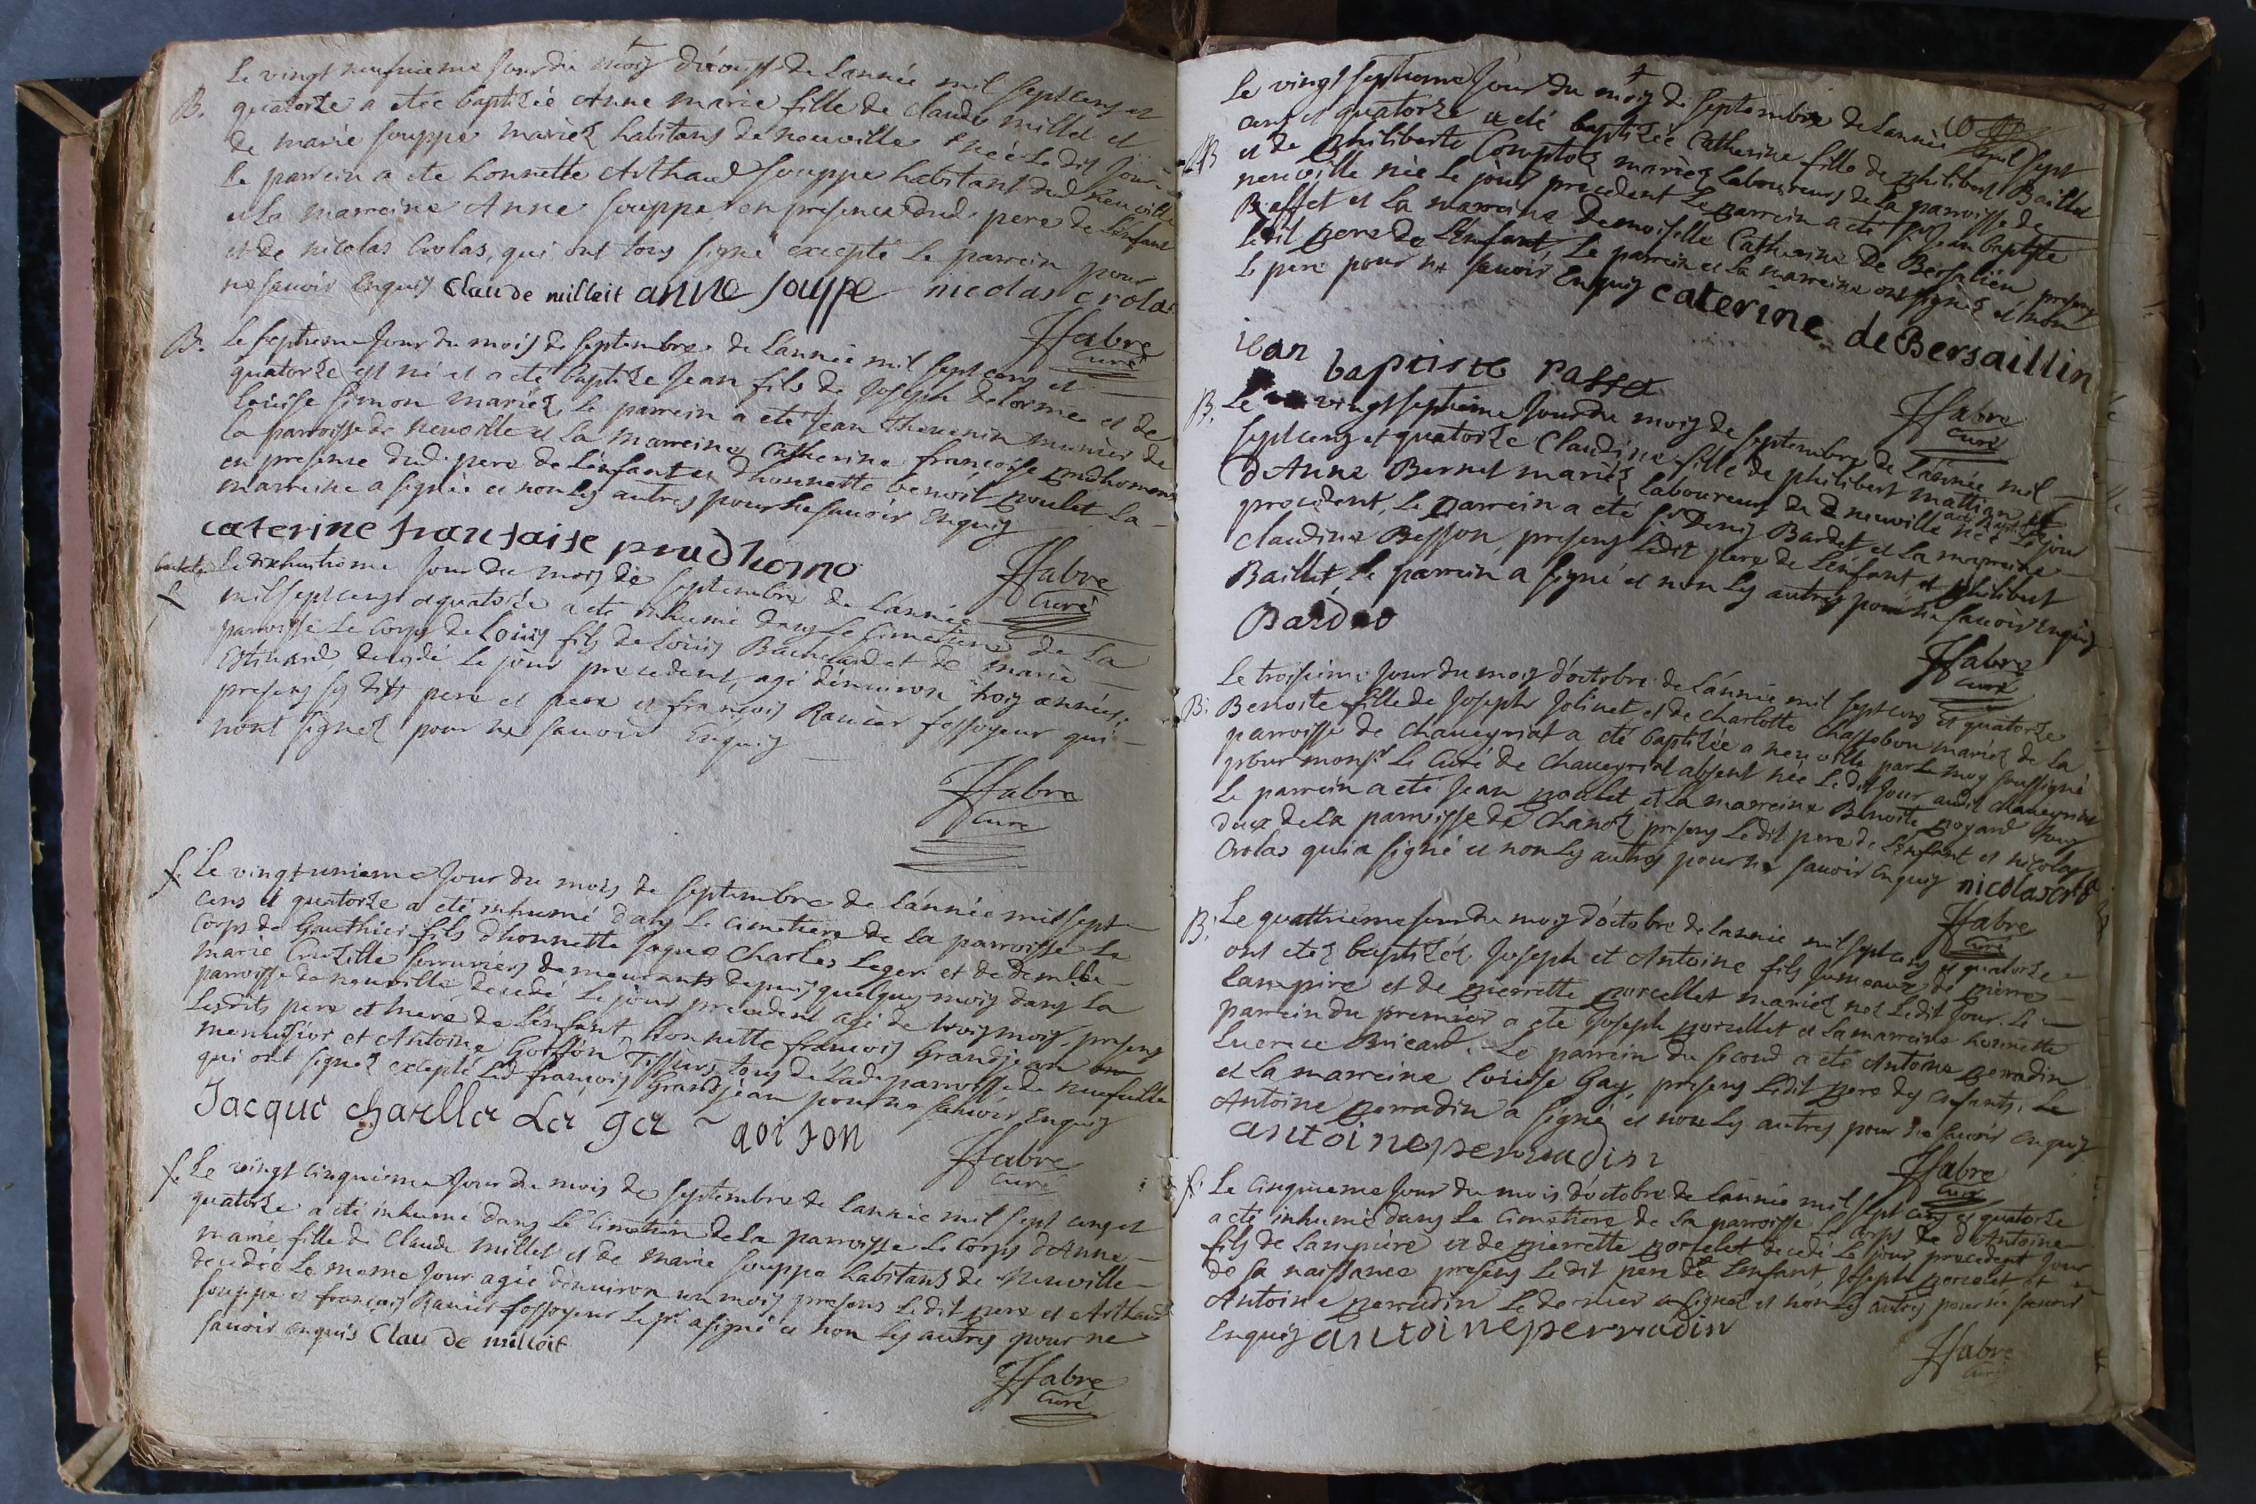 Le vingt neufvieme jour du mois d'àoust de L'année mil sept cens et
B. quatorze a etée baptizée Anne marie fille de claude millet et
de marie souppe mariez habitans de neuville née Le dit jour
Le parrein a ete honnette Arthaud souppe habitant dud neuville
et La marreine Anne souppe en presence dud. pere de L'enfant
et de nicolas Crolas, qui ont tous signé excepté Le parrein pour
ne savoir Enquis Claude milleit anne souppe nicolas crolas
ffabre
curé
B. Le septieme jour du mois de septembre de L'année mil sept cens et
quatorze est né et a eté baptizé Jean fils de Joseph delorme et de
Loüise simon mariez, Le parrein a eté Jean Thevenin munier de
La parroisse de neuville et La marreine Catherine françoise prudhomme
en presence dud. pere de L'enfant et d'honnette benoît poulet La
marreine a signée et non les autres pour ne savoir Enquis
caterine fransaise prudhomo
ffabre
curé
f Le dixhuitieme jour du mois de septembre de L'année
mil sept cens et quatorze a eté inhumé dans Le Cimetiere de La
parroisse Le Corps de Loüis fils de Loüis et de marie
decedé Le jour precedent, agé d'environ trois années,
presens pere et françois Ravier fossoyeur qui
n'ont signez pour ne savoir Enquis
ffabre
curé
f. Le vingt-unieme jour du mois de septembre de L'année mil sept
cens et quatorze a eté inhumé dans Le cimetiere de La parroisse Le
Corps de Gauthier fils d'honnette Jaques Charles Leger et de
marie Cruzille serruriers demeurants depuis quelques mois dans La
parroisse de neuville, decedé Le jour precedent agé de trois mois, presens
Lesdits pere et mere de L'enfant, honnette francois Grandjean
menuisier et Antoine Goiffon Tissiers tous de Lad. parroisse de neufville
qui ont signez excepté Led. françois Grandjean pour ne savoir Enquis
Jacque charller Ler ger goison
ffabre
curé
f. Le vingt cinquieme jour du mois de septembre de L'année mil sept cens et
quatorze a eté inhumé dans Le Cimetiere de La parroisse Le corps d'Anne
marie fille de Claude millet et de marie souppe habitans de Neuville
decedée Le meme jour agée d'environ un mois presens Ledit pere et Arthaud
souppe et françois Ravier fossoyeur Le pr. a signé et non les autres pour ne
savoir enquis Clau de milleit
ffabre
curé
Le vingt septieme jour du mois de septembre de L'année mil sept
cens et quatorze a eté baptizée Catherine fille de philibert Baillet
B et de philiberte Comptoz mariez Laboureurs de La parroisse de
neuville née Le jour precedent Le parrein a eté sr. Jean baptiste
Raffet et La marreine Demoiselle Catherine De Bersalien presens
Ledit pere de L'enfant, Le parrein et La marreine ont signez et non
Le pere pour ne savoir Enquis caterine de Bersaillin
ican baptiste raffet
ffabre
curé
B. Le vingt septieme jour du mois de septembre de L'année mil
sept cens et quatorze Claudine fille de philibert mattian et
d'Anne Bernet mariez Laboureurs de neuville née Le jour
precedent, Le parrein a eté sr. Denis Bardet et La marreine
Claudine Besson, presens Ledit pere de L'enfant et philibert
Baillet Le parrein a signé et non les autres pour ne savoir Enquis
Bardeo
ffabre
curé
Le troisieme jour du mois d'octobre de L'année mil sept cens et quatorze
B. Benoite fille de Joseph Jolinet et de Charlotte Chassebou mariez de La
parroisse de chaveyriat a eté baptizée a neuville par moy soussigné
pour monsr. Le Curé de chaveyriat absent née Ledit jour audit chaveyriat
Le parrein a ete Jean poulet et La marreine Benoite poyard tous
deux de La parroisse de Chanoz presens Ledit pere de L'enfant et nicolas
Crolas qui a signé et non les autres pour ne savoir enquis nicolas cro
ffabre
curé
B. Le quattrieme jour du mois d'octobre de L'année mil sept cens et quatorze
ont etez baptizez Joseph et Antoine fils Jumeaux de pierre
Lampire et de pierrette porcellet mariez nez Ledit jour. Le
parrein du premier a ete Joseph porcellet et La marreine honnette
Lucrece Bricard. Le parrein du second a eté Antoine perradin
et La marreine Loüise Gay, presens Ledit pere des enfants, Le
Antoine perradin a signé et non les autres pour ne savoir enquis
antoine perrradin
ffabre
curé
f. Le Cinquieme jour du mois d'octobre de L'année mil sept cens et quatorze
a eté inhumé dans Le Cimetiere de La parroisse Le Corps d'Antoine
fils de Lampire et de pierrette porcelet decedé Le jour precedent jour
de sa naissance presens Ledit pere de L'enfant, Joseph porcelet et
Antoine perradin Le dernier a signez et non les autres pour ne savoir
Enquis antoine perrradin
ffabre
curé